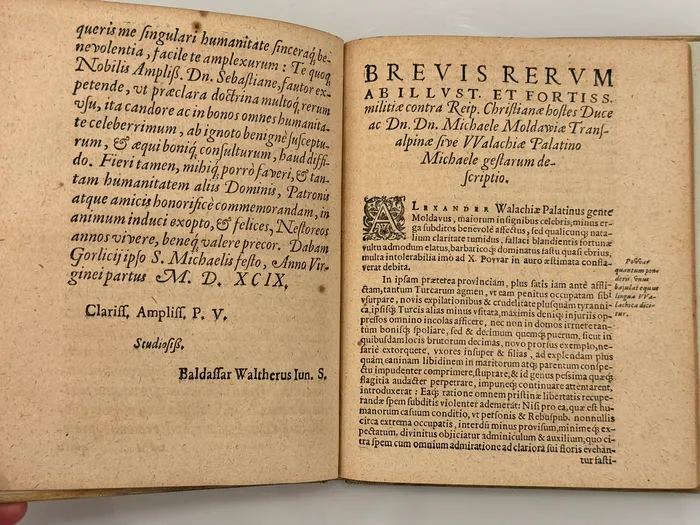 queris me singulari humanitate sinceraq́; be-
nevolentia, facile te amplexurum: Te quoq́;
Nobilis Ampliß. Dn. Sebastiane, fautor ex-
petende, vt præclara doctrina multoq́; rerum
vsu, ita candore ac in bonos omnes humanita-
te celeberrimum, ab ignoto benignè susceptu-
rum, & æqui boniq́; consulturum, haud diffi-
do. Fieri tamen, mihiq́; porrò faveri, & tan-
tam humanitatem aliis Dominis, Patronis
atque amicis honorificè commemorandam, in
animum induci exopto, & felices, Nestoreos
annos vivere, beneq́; valere precor. Dabam
Gorlicij ipso S. Michaelis festo, Anno Vir-
ginei partus M. D. XCIX.
Clariss. Ampliss. P. V.
Studiosiß.
Baldassar Waltherus Iun. S.
BREVIS RERVM
AB ILLVST. ET FORTISS.
militiæ contra Reip. Christianæ hostes Duce
ac Dn. Dn. Michaele Moldawiæ Trans-
alpinæ sive VValachiæ Palatino
Michaele gestarum de-
scriptio.
ALEXANDER Walachiæ Palatinus gente
Moldavus, maiorum insignibus celebris, minus er-
ga subditos benevolè affectus, sed qualicunq; nata-
lium claritate tumidus, fallaci blandientis fortunæ
vultu admodum elatus, barbaricoq́; dominatus fastu quasi ebrius,
multa intolerabilia imò ad X. Povvar in auro æstimata confla-
verat debita.
Povvar
quantum pon-
deris, vnus
bajulat equus
lingua VVa-
lachica dici-
tur.
In ipsam præterea provinciam, plus satis iam antè affli-
ctam, tantum Turcarum agmen, vt eam penitus occupatam sibi
vsurpare, novis expilationibus & crudelitate plusquàm tyranni-
ca, ipsisq́; Turcis alias minus vsitata, maximis deniq; injuriis op-
pressos omnino incolas afficere, nec non in domos irruere tan-
tùm bonisq́; spoliare, sed & decimum quemq; puerum, sicut in
quibusdam locis brutorum decimas, novo prorsus exemplo, ne-
sariè extorquere, vxores insuper & filias, ad explendam plus
quàm caninam libidinem in maritorum atq; parentum conspe-
ctu impudenter comprimere, stuprare, & id genus pessima quæq́;
flagitia audacter perpetrare, impuneq́; continuare attentarent,
introduxerat: Eaq́; ratione omnem pristinæ libertatis recupe-
randæ spem subditis violenter ademerat: Nisi pro ea, quæ est hu-
manorum casuum conditio, vt personis & Rebuspub. nonnullis
circa extrema occupatis, interdū minus provisum, minimeq́; ex-
pectatum, divinitus objiciatur adminiculum & auxilium, quo ci-
tra spem cum omnium admiratione ad clariora sui floris evehan-
tur fasti-